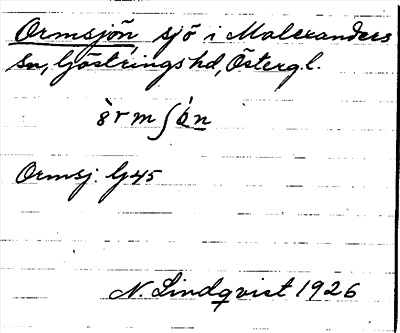 Ormsjön sjö i Malexanders
sn, Göstrings hd, Östergl.
Ormsj. G45
N. Lindqvist 1926